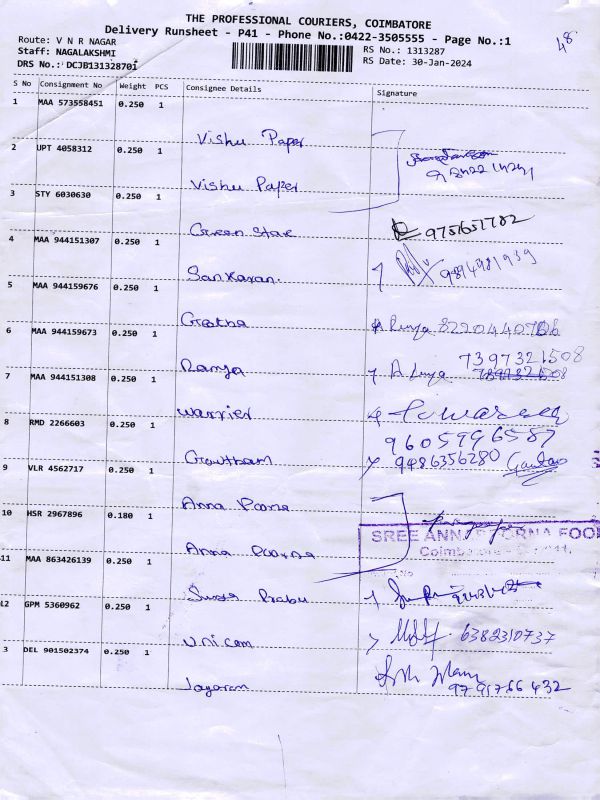 THE PROFESSIONAL COURIERS, COIMBATORE
Delivery Runsheet - P41 - Phone No.:0422-3505555 - Page No.:1
48
Route: V N R NAGAR
RS No.: 1313287
Staff: NAGALAKSHMI
RS Date: 30-Jan-2024
DRS No.: DCJB131328701
S No Consignment No Weight PCS Consignee Details Signature
1 MAA 573558451 0.250 1
Vishu Paper
2 UPT 4058312 0.250 1
Vishu Paper
3 STY 6030630 0.250 1
Green Star
4 MAA 944151307 0.250 1
Sankaran.
5 MAA 944159676 0.250 1
Geetha 8220440706
6 MAA 944159673 0.250 1
7397321508
Ramya
7 MAA 944151308 0.250 1
Warrier
8 RMD 2266603 0.250 1
9605996587
Gowtham 9486356280
9 VLR 4562717 0.250 1
Anna Poorna
10 HSR 2967896 0.180 1
SREE ANNAPOORNA FOO
Anna Poorna Coimbatore
11 MAA 863426139 0.250 1
Prabu
12 GPM 5360962 0.250 1
Uni.com 6382310737
3 DEL 901502374 0.250 1
Jayaram 9791766432